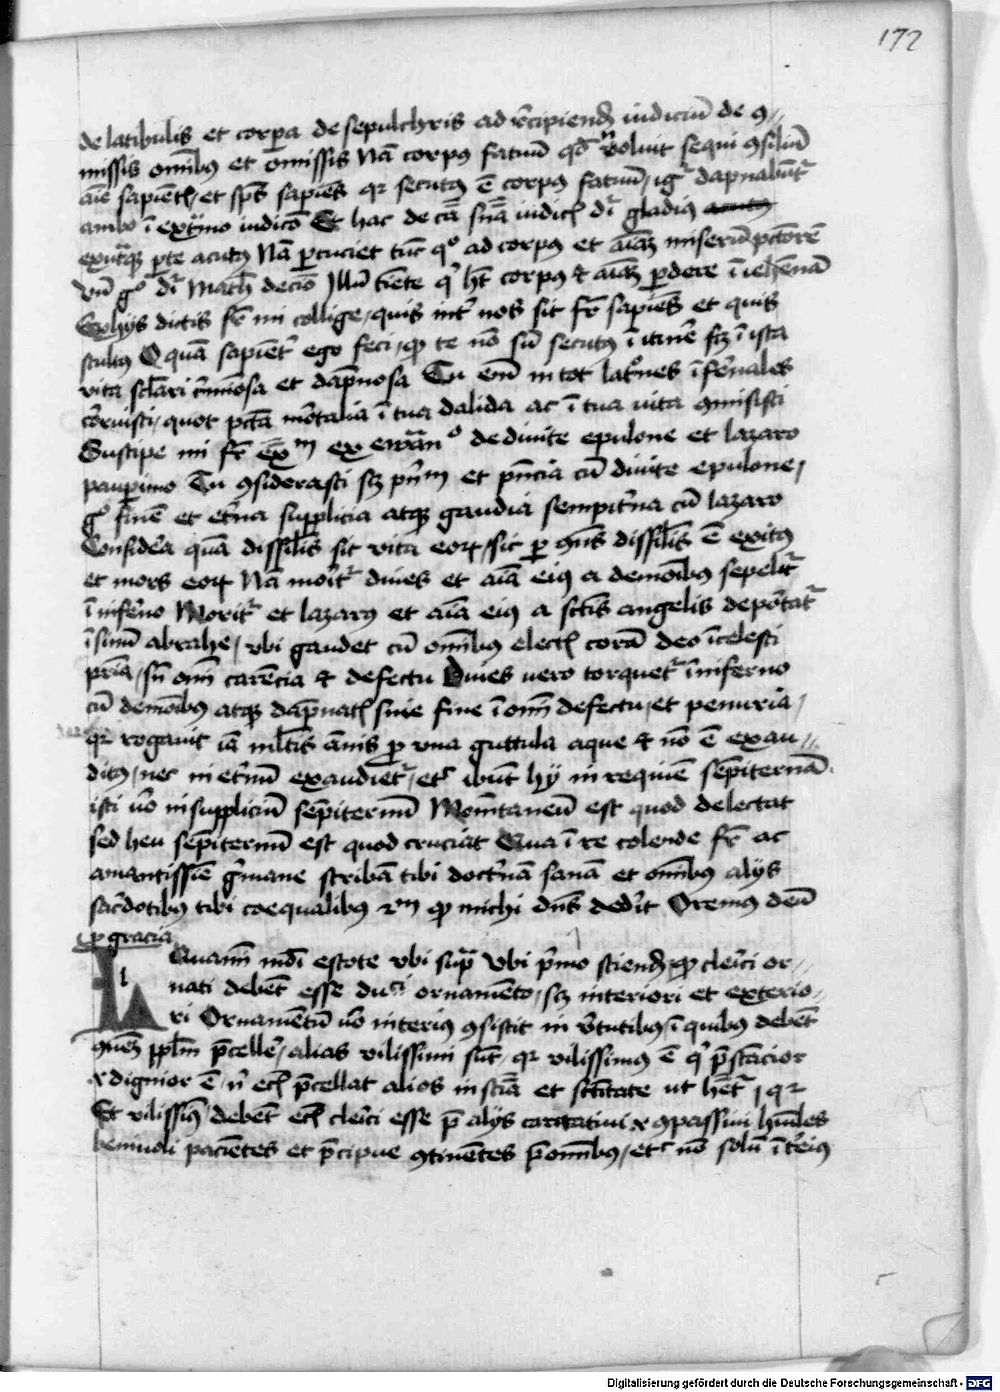 172
de latibulis et corpora de sepulchris ad recipiend iudiciū de 9
missis omībus et omissis Nā corpus fatuū qd noluit sequi 9siliū
aīe sapient et spūs sapiēs qr secutus ē corpus fatuū igr dapnabūtr
ambo ī extremo iudicō Et hac de cā snīa iudic dr gladius
ex utraqz pte acutus Nā percuciet tūc q° ad corpus et aīaz miserū pctorē
vn g° dr Math decīo Illū timete q' ht corpus et aīaz perdere ī iehēnā
Ex hijs dictis fr mi collige quis intr nos sit fr sapiēs et quis
stultus O quā sapientr ego feci qp te nō sū secutus ī itinē sz ī ista
vita sclari criminosa et dāpnosa Tu enī in tot latrones īfernales
corruisti quot pctā mortalia ī tua dalida ac ī tua vita 9misisti
Suscipe mi fr exm ex ewan° de divite epulone et lazaro
pauperimo Tu 9siderasti sz pn̄m et pn̄cia cū divite epulone
g° finē et etna supplicia atqz gaudia sempitna cū lazaro
Considera quā dissilis sit vita eorum sic per 9ns dissilis ē exitus
et mors eorum Nā moritr dives et aīa eius a demonibus sepelitr
ī inferno Moritr et lazarus et aīa eius a sctis angelis deportatr
ī sinū abrahe ubi gaudet cū omībus elect corā deo ī celesti
pria sn omī carēcia et defectu Dives vero torquetr ī inferno
cū demonibus atqz dāpnat sine fine ī omī defectu et penuria
qr rogavit iā mltis ānis p una guttula aque et nō ē exau
ditus nec in eternū exaudietr etc ibūt hij in requiē sēpiternā
isti vō in suppliciū sēpiternū Momētaneū est quod delectat
sed heu sēpiternū est quod cruciat Qua ī re colende fr ac
amantissīe gmane scribā tibi doctrinā sanā et omībus alijs
sacerdotibus tibi coequalibus qp michi dns dedit Oremus deū
p gracia
Quanī mdi estote ubi supra Ubi primo sciend qp clerici or
nati debēt esse duci ornamēto sz interiori et exterio
ri Ornamētū vō interius 9sistit in virtutibus ī quibus debēt
pplm pcelle alias vilissimi sūt qr vilissimus ē q' pstācior
et dignior ē n ecā pcellat alios in sciā et sctitate ut hetr qr
Et vilissimus debēt ecā clerici esse p alijs caritativi et 9passivi humiles
benivoli paciētes et pcipue 9tinētes omībus etc nō solū īterius
Digitalisierung gefördert durch die Deutsche Forschungsgemeinschaft - DFG